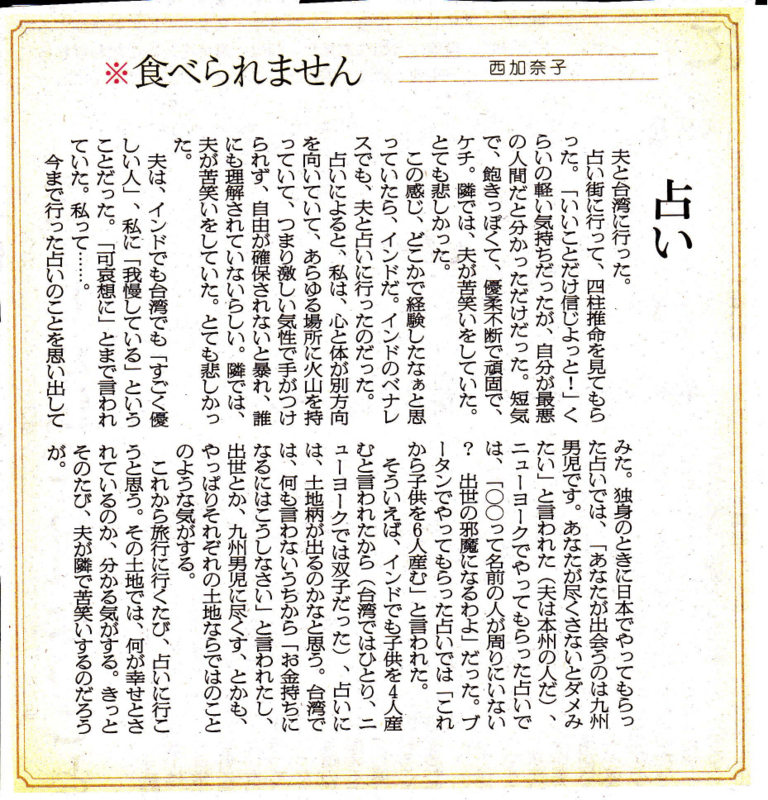 ※食べられません
西加奈子
占い
夫と台湾に行った。
占い街に行って、四柱推命を見てもら
った。「いいことだけ信じよっと！」く
らいの軽い気持ちだったが、自分が最悪
の人間だと分かっただけだった。短気
で、飽きっぽくて、優柔不断で頑固で、
ケチ。隣では、夫が苦笑いをしていた。
とても悲しかった。
この感じ、どこかで経験したなぁと思
っていたら、インドだ。インドのベナレ
スでも、夫と占いに行ったのだった。
占いによると、私は、心と体が別方向
を向いていて、あらゆる場所に火山を持
っていて、つまり激しい気性で手がつけ
られず、自由が確保されないと暴れ、誰
にも理解されていないらしい。隣では、
夫が苦笑いをしていた。とても悲しかっ
た。
夫は、インドでも台湾でも「すごく優
しい人」、私に「我慢している」という
ことだった。「可哀想に」とまで言われ
ていた。私って……。
今まで行った占いのことを思い出して
みた。独身のときに日本でやってもらっ
た占いでは、「あなたが出会うのは九州
男児です。あなたが尽くさないとダメみ
たい」と言われた（夫は本州の人だ）、
ニューヨークでやってもらった占いで
は、「〇〇って名前の人が周りにいない
？　出世の邪魔になるわよ」だった。ブ
ータンでやってもらった占いでは「これ
から子供を6人産む」と言われた。
そういえば、インドでも子供を4人産
むと言われたから（台湾ではひとり、ニ
ューヨークでは双子だった）、占いに
は、土地柄が出るのかなと思う。台湾で
は、何も言わないうちから「お金持ちに
なるにはこうしなさい」と言われたし、
出世とか、九州男児に尽くす、とかも、
やっぱりそれぞれの土地ならではのこと
のような気がする。
これから旅行に行くたび、占いに行こ
うと思う。その土地では、何が幸せとさ
れているのか、分かる気がする。きっと
そのたび、夫が隣で苦笑いするのだろう
が。